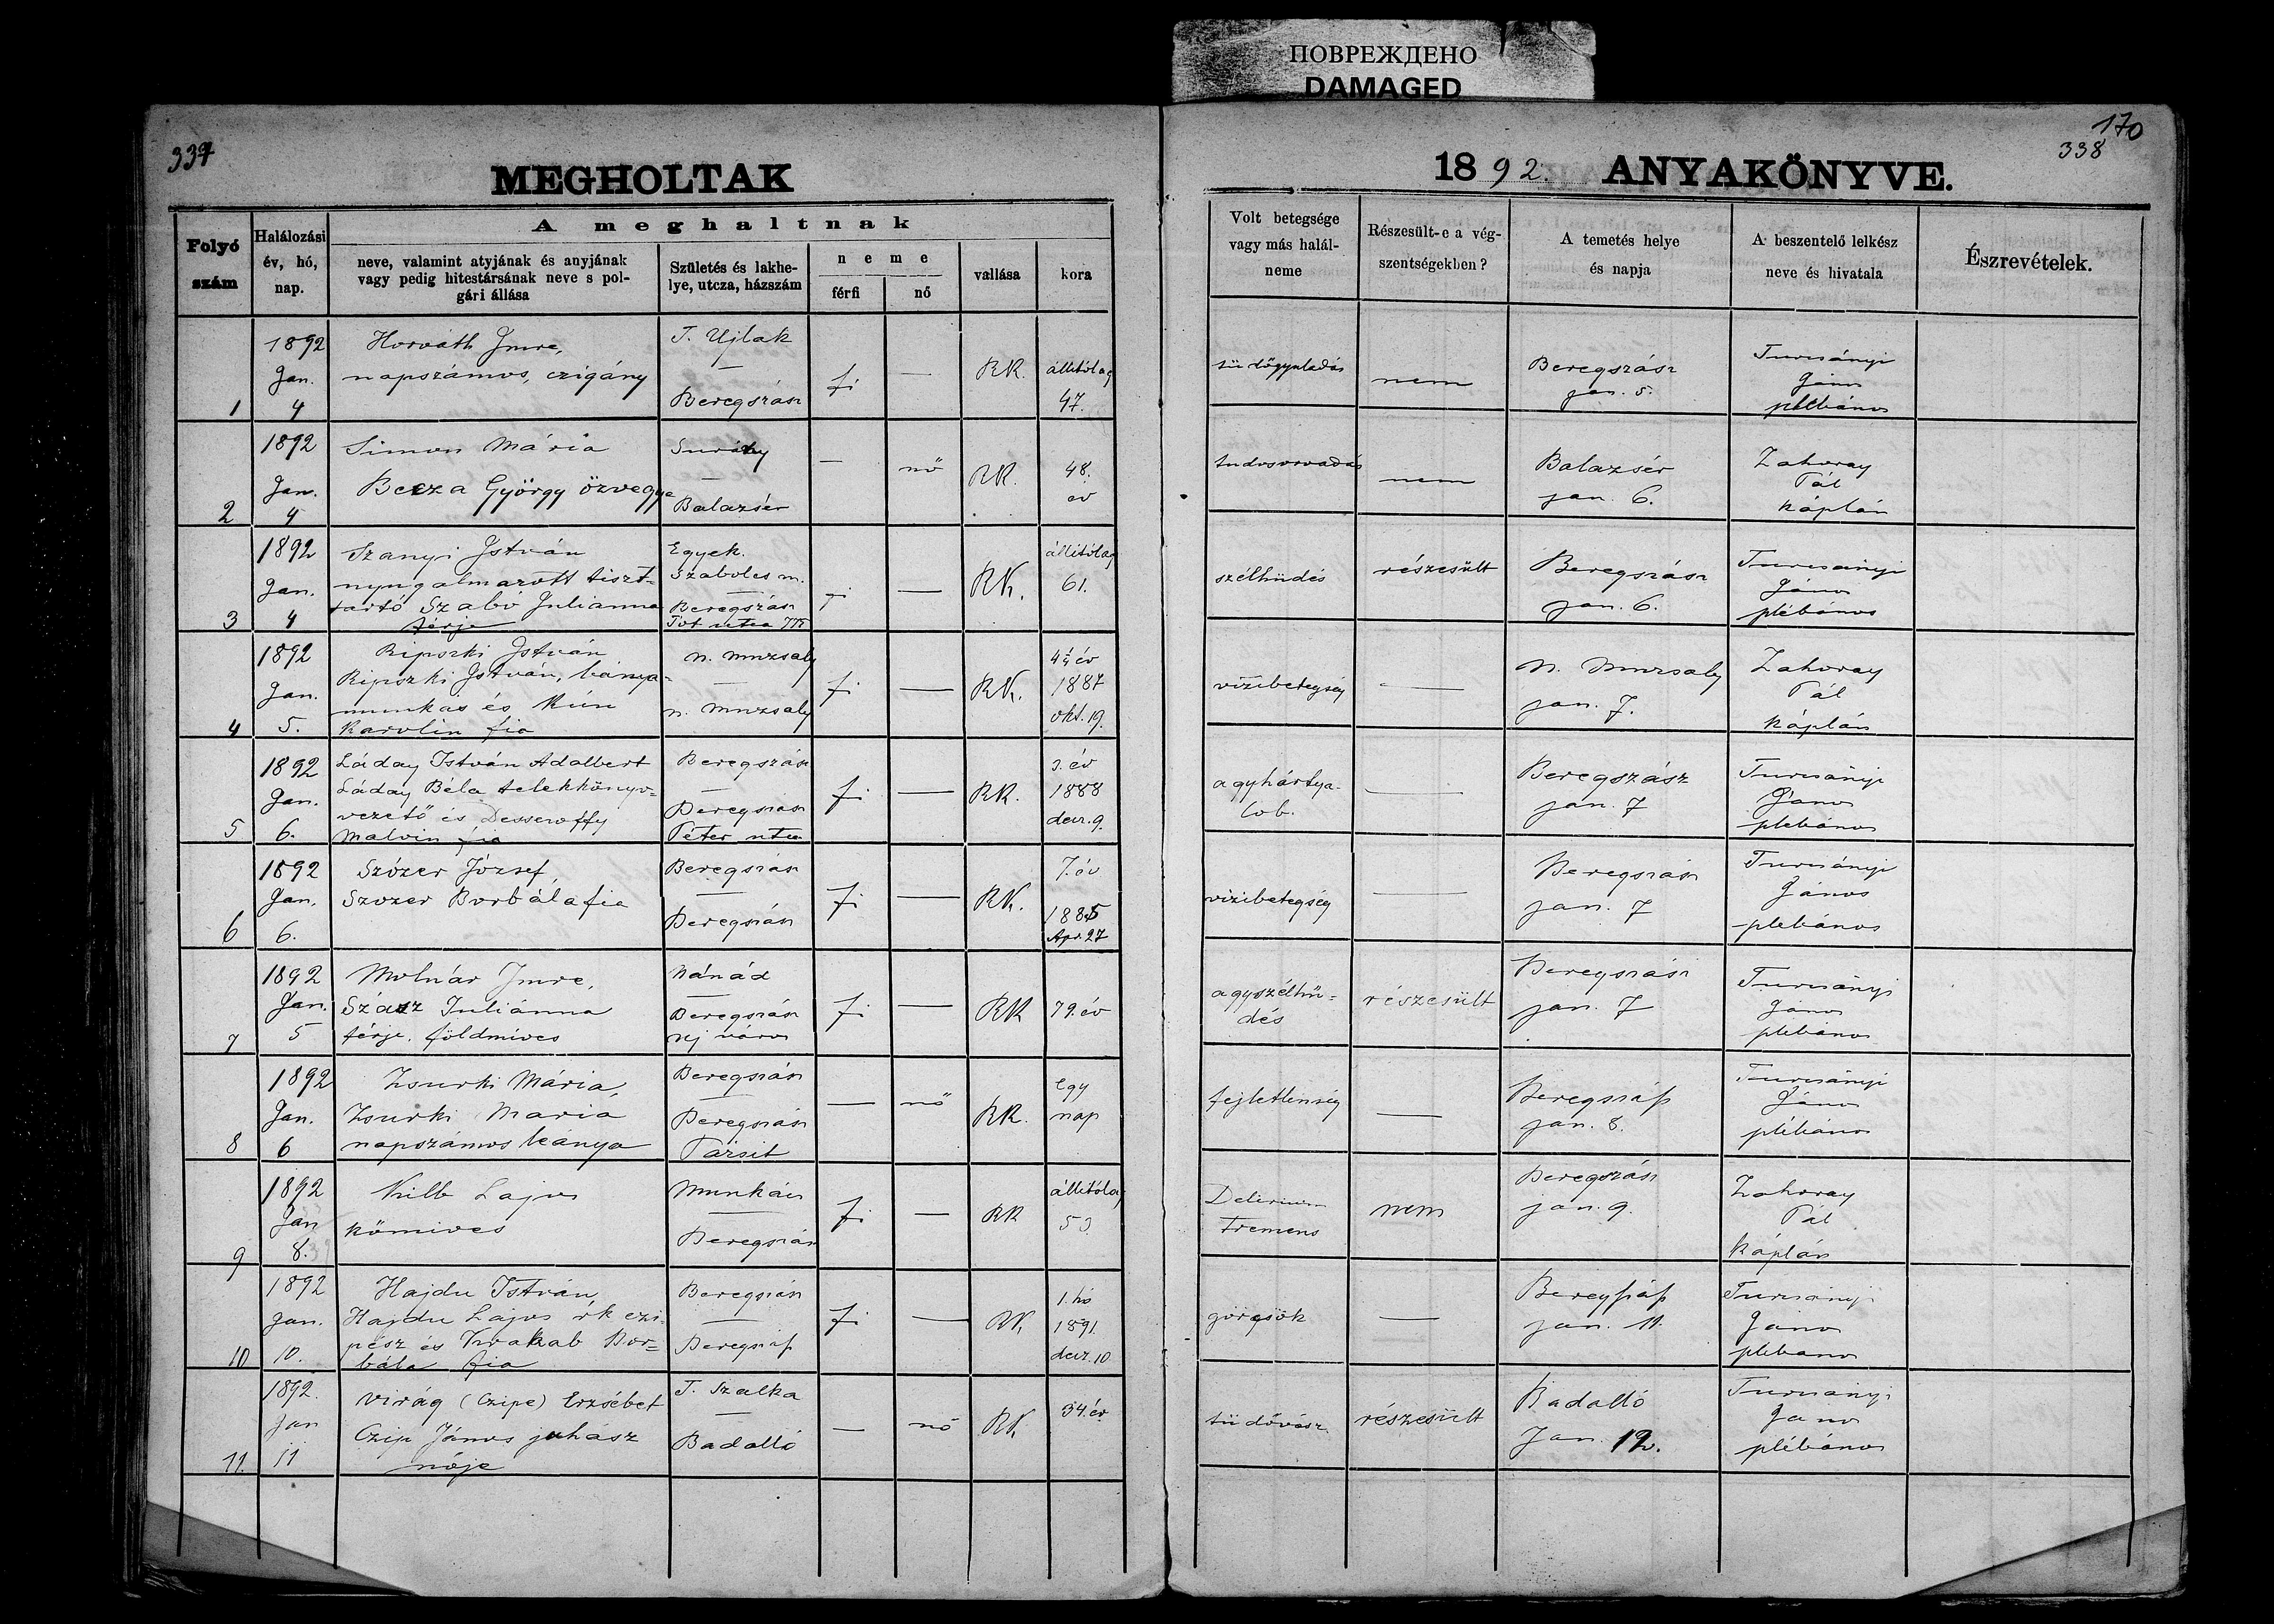 ПОВРЕЖДЕНО
DAMAGED
337
170
338
MEGHOLTAK
1892. ANYAKÖNYVE.
Folyó szám
Halálozási év, hó, nap.
A meghaltnak
neve, valamint atyjának és anyjának
vagy pedig hitestársának neve s pol-
gári állása
Születés és lakhe-
lye, utcza, házszám
neme
férfi
nő
vallása
kora
Volt betegsége
vagy más halál-
neme
Részesült-e a vég-
szentségekben?
A temetés helye
és napja
A beszentelő lelkész
neve és hivatala
Észrevételek.
1
1892
Jan.
4
Horváth Imre,
napszámos, czigány
T. Ujlak
—
Beregszász
fi
—
RK.
állitólag
47.
tüdőgyuladás
nem
Beregszász
jan. 5.
Turcsányi
János
plébános
2
1892
Jan.
4
Simon Mária
Becza György özvegye
Surány
—
Balazsér
—
nő
RK.
48.
év
nem
Balazsér
jan. 6.
Zahoray
Pál
káplán
3
1892
Jan.
4
Szanyi István
nyugalmazott tiszt-
tartó Szabó Julianna
férje
Egyek.
Szabolcs m.
—
Beregszász
Tót utca
fi
—
RK.
állitólag
61.
szélhüdés
részesült
Beregszász
jan. 6.
Turcsányi
János
plébános
4
1892
Jan.
5.
Ripszki István
Ripszki István, bánya-
munkás és Kún
Karolin fia
n. muzsaly
—
n. muzsaly
fi
—
RK.
4 1/4 év
1887
okt. 19.
vizibetegség
—
N. Muzsaly
jan. 7.
Zahoray
Pál
káplán
5
1892
Jan.
6.
Láday István Adalbert
Láday Béla telekkönyv-
vezető és Dessewffy
Malvin fia
Beregszász
—
Beregszász
Péter utca
fi
—
RK.
3. év
1888
decz. 9.
agyhártya-
lob.
—
Beregszász
jan. 7
Turcsányi
János
plebános
6
1892
Jan.
6.
Szózer József,
Szozer Borbála fia
Beregszász
—
Beregszász
fi
—
RK.
7. év
1885
Apr. 27
vizibetegség
—
Beregszász
jan. 7
Turcsányi
János
plebános
7
1892
Jan.
5
Molnár Imre,
Szász Juliánna
férje. földmives
Nánád
—
Beregszász
uj város
fi
—
RK
79. év
agyszélhü-
dés
részesült
Beregszász
jan. 7
Turcsányi
János
plebános
8
1892
Jan.
6
Zsurki Mária
Zsurki Maria
napszámos leánya
Beregszász
—
Beregszász
—
nő
RK.
egy
nap
fejletlenség
—
Beregszász
jan. 8.
Turcsányi
János
plébános
9
1892
Jan
8.
Kilb Lajos
kömives
Munkács
—
Beregszász
fi
—
RK
állitólag
53
Delirium
tremens
nem
Beregszász
jan. 9.
Zahoray
Pál
káplán
10
1892
Jan.
10.
Hajdu István,
Hajdu Lajos rk czi-
pész és Brakab Bor-
bála fia
Beregszász
—
Beregszász
fi
—
RK
1. hó
1891.
decz. 10
görcsök
—
Beregszász
jan. 11.
Turcsányi
János
plebános
11.
1892.
Jan
11
Virág (Czipe) Erzsébet
Czip János juhász
nője
T. Szalka
—
Badalló
—
nő
RK
34. év
tüdővész
részesült
Badalló
Jan. 12.
Turcsányi
János
plébános